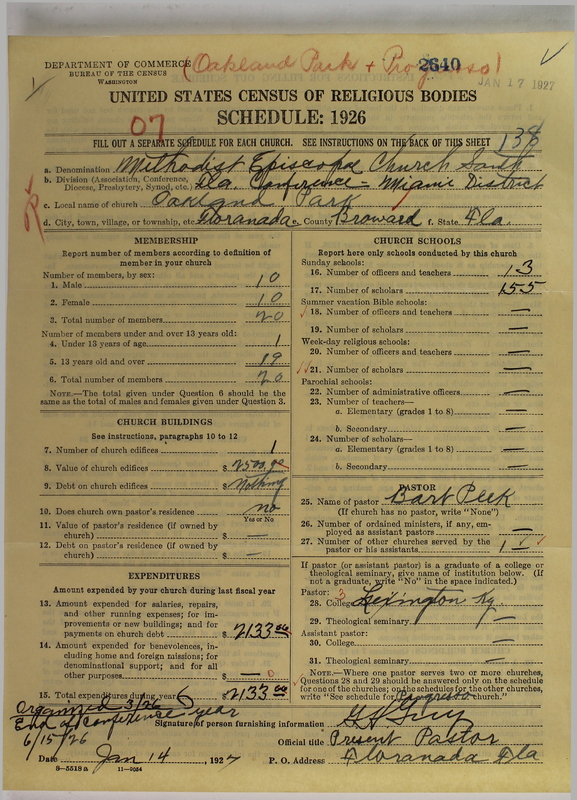 (Oakland Park + Progresso)
DEPARTMENT OF COMMERCE
BUREAU OF THE CENSUS
WASHINGTON
2640
JAN 17 1927
UNITED STATES CENSUS OF RELIGIOUS BODIES
SCHEDULE: 1926
07
FILL OUT A SEPARATE SCHEDULE FOR EACH CHURCH. SEE INSTRUCTIONS ON THE BACK OF THIS SHEET
138
a. Denomination Methodist Episcopal Church South
b. Division (Association, Conference, Diocese, Presbytery, Synod, etc.) Fla. Conference - Miami District
c. Local name of church Oakland Park
d. City, town, village, or township, etc. Floranada e. County Broward f. State Fla.
MEMBERSHIP
Report number of members according to definition of member in your church
Number of members, by sex:
1. Male 10
2. Female 10
3. Total number of members 20
Number of members under and over 13 years old:
4. Under 13 years of age 1
5. 13 years old and over 19
6. Total number of members 20
NOTE.—The total given under Question 6 should be the same as the total of males and females given under Question 3.
CHURCH BUILDINGS
See instructions, paragraphs 10 to 12
7. Number of church edifices 1
8. Value of church edifices $ 2500.00
9. Debt on church edifices $ Nothing
10. Does church own pastor's residence no
Yes or No
11. Value of pastor's residence (if owned by church) $ —
12. Debt on pastor's residence (if owned by church) $ —
EXPENDITURES
Amount expended by your church during last fiscal year
13. Amount expended for salaries, repairs, and other running expenses; for improvements or new buildings; and for payments on church debt $ 2133.00
14. Amount expended for benevolences, including home and foreign missions; for denominational support; and for all other purposes $ — 0
15. Total expenditures during year $ 2133.00
CHURCH SCHOOLS
Report here only schools conducted by this church
Sunday schools:
16. Number of officers and teachers 13
17. Number of scholars 155
Summer vacation Bible schools:
18. Number of officers and teachers —
19. Number of scholars —
Week-day religious schools:
20. Number of officers and teachers —
21. Number of scholars —
Parochial schools:
22. Number of administrative officers —
23. Number of teachers—
a. Elementary (grades 1 to 8) —
b. Secondary —
24. Number of scholars—
a. Elementary (grades 1 to 8) —
b. Secondary —
PASTOR
25. Name of pastor Bart Peek
(If church has no pastor, write "None")
26. Number of ordained ministers, if any, employed as assistant pastors —
27. Number of other churches served by the pastor or his assistants 1
If pastor (or assistant pastor) is a graduate of a college or theological seminary, give name of institution below. (If not a graduate, write "No" in the space indicated.)
Pastor: 3
28. College Lexington Ky
29. Theological seminary —
Assistant pastor:
30. College —
31. Theological seminary —
NOTE.—Where one pastor serves two or more churches, Questions 28 and 29 should be answered only on the schedule for one of the churches; on the schedules for the other churches, write "See schedule for Progresso church."
Organized 3/26
End of Conference year
6/15/26
Signature of person furnishing information
Official title Present Pastor
Date Jan 14, 1927
P. O. Address Floranada Fla
8—5518a 11—9064